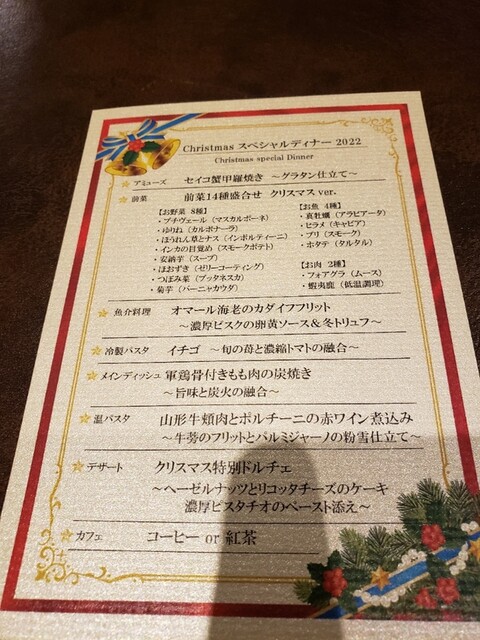 Christmas スペシャルディナー 2022
Christmas special Dinner
アミューズ セイコ蟹甲羅焼き ～グラタン仕立て～
前菜 前菜14種盛合せ クリスマス ver.
【お野菜 8種】
・プチヴェール（マスカルポーネ）
・ゆりね（カルボナーラ）
・ほうれん草とナス（インボルティーニ）
・インカの目覚め（スモークポテト）
・安納芋（スープ）
・ほおずき（ゼリーコーティング）
・つぼみ菜（プッタネスカ）
・菊芋（バーニャカウダ）
【お魚 4種】
・真牡蠣（アラビアータ）
・ヒラメ（キャビア）
・ブリ（スモーク）
・ホタテ（タルタル）
【お肉 2種】
・フォアグラ（ムース）
・蝦夷鹿（低温調理）
魚介料理 オマール海老のカダイフフリット
～濃厚ビスクの卵黄ソース＆冬トリュフ～
冷製パスタ イチゴ ～旬の苺と濃縮トマトの融合～
メインディッシュ 軍鶏骨付きもも肉の炭焼き
～旨味と炭火の融合～
温パスタ 山形牛頬肉とポルチーニの赤ワイン煮込み
～牛蒡のフリットとパルミジャーノの粉雪仕立て～
デザート クリスマス特別ドルチェ
～ヘーゼルナッツとリコッタチーズのケーキ
濃厚ピスタチオのペースト添え～
カフェ コーヒー or 紅茶